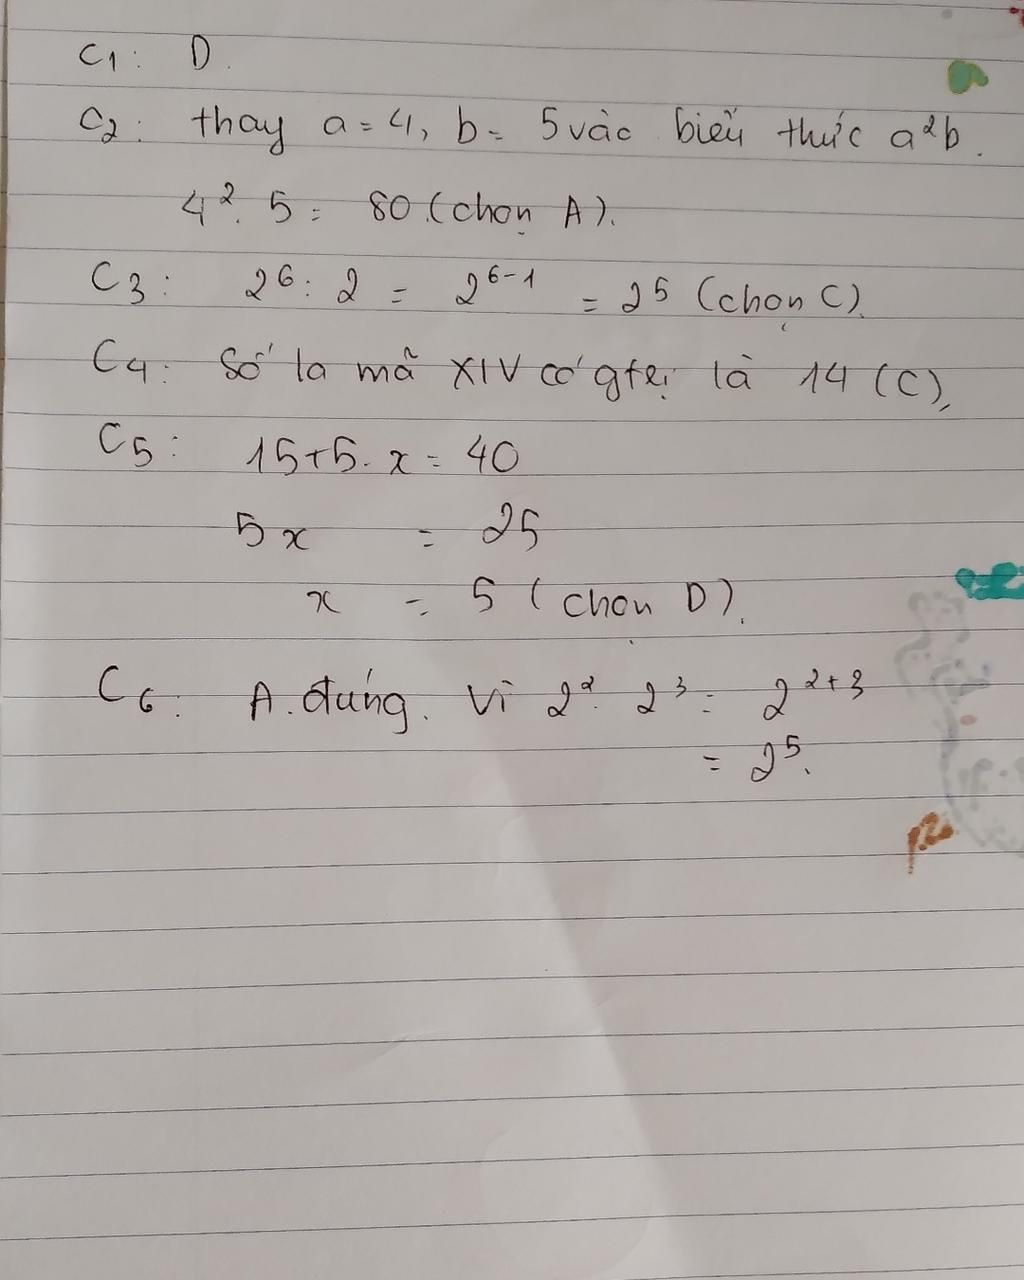 C1: D.
C2: thay a = 4, b = 5 vào biểu thức a²b.
4². 5 = 80 (chọn A).
C3: 2⁶ : 2 = 2⁶⁻¹ = 2⁵ (chọn C).
C4: Số la mã XIV có gtrị là 14 (C).
C5: 15+5. x = 40
5x = 25
x = 5 (chọn D).
C6: A. đúng. Vì 2². 2³ = 2²⁺³
= 2⁵.